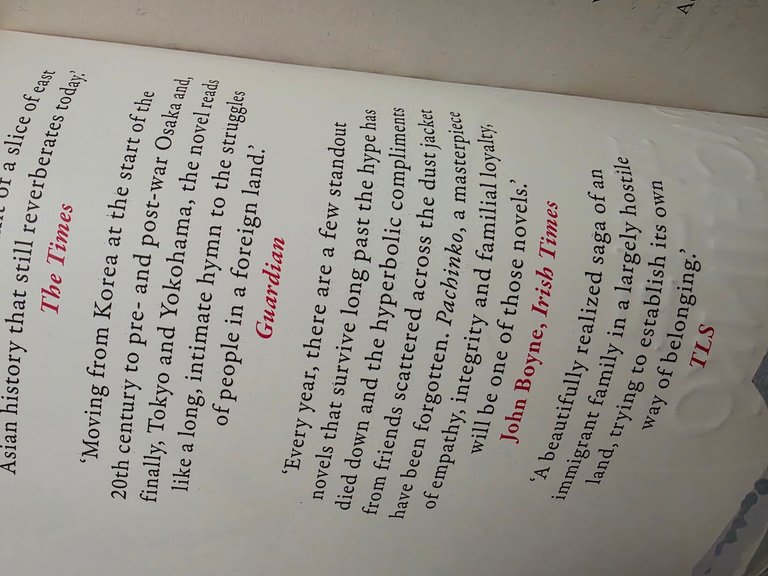 of a slice of east
Asian history that still reverberates today.’
The Times
‘Moving from Korea at the start of the
20th century to pre- and post-war Osaka and,
finally, Tokyo and Yokohama, the novel reads
like a long, intimate hymn to the struggles
of people in a foreign land.’
Guardian
‘Every year, there are a few standout
novels that survive long past the hype has
died down and the hyperbolic compliments
from friends scattered across the dust jacket
have been forgotten. Pachinko, a masterpiece
of empathy, integrity and familial loyalty,
will be one of those novels.’
John Boyne, Irish Times
‘A beautifully realized saga of an
immigrant family in a largely hostile
land, trying to establish its own
way of belonging.’
TLS